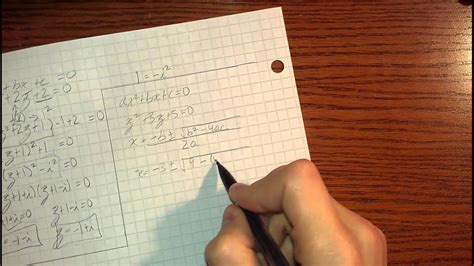 +bx+c=0
+2z+2=0
z+1)-1+2=0
z+1)²+1=0
z+1)²-i²=0
z+1-i)=0
+1+i=0 z+1-i=0
z=-1-i z=-1+i
1=-i²
ax²+bx+c=0
z²+3z+5=0
x=-b±√b²-4ac
2a
x=-3±√9-